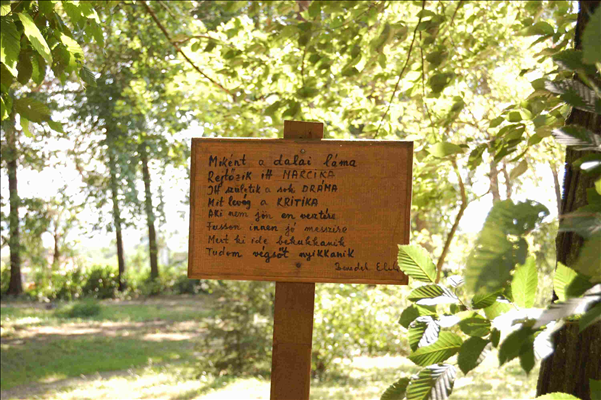 Miként a dalai láma
Rejtőzik itt NARCIKA
Itt születik a sok DRÁMA
Mit levág a KRITIKA
Aki nem jön en vesztére
Fusson innen jó messzire
Mert ki ide bekukkanik
Tudom végsőt nyikkanik
Benedek